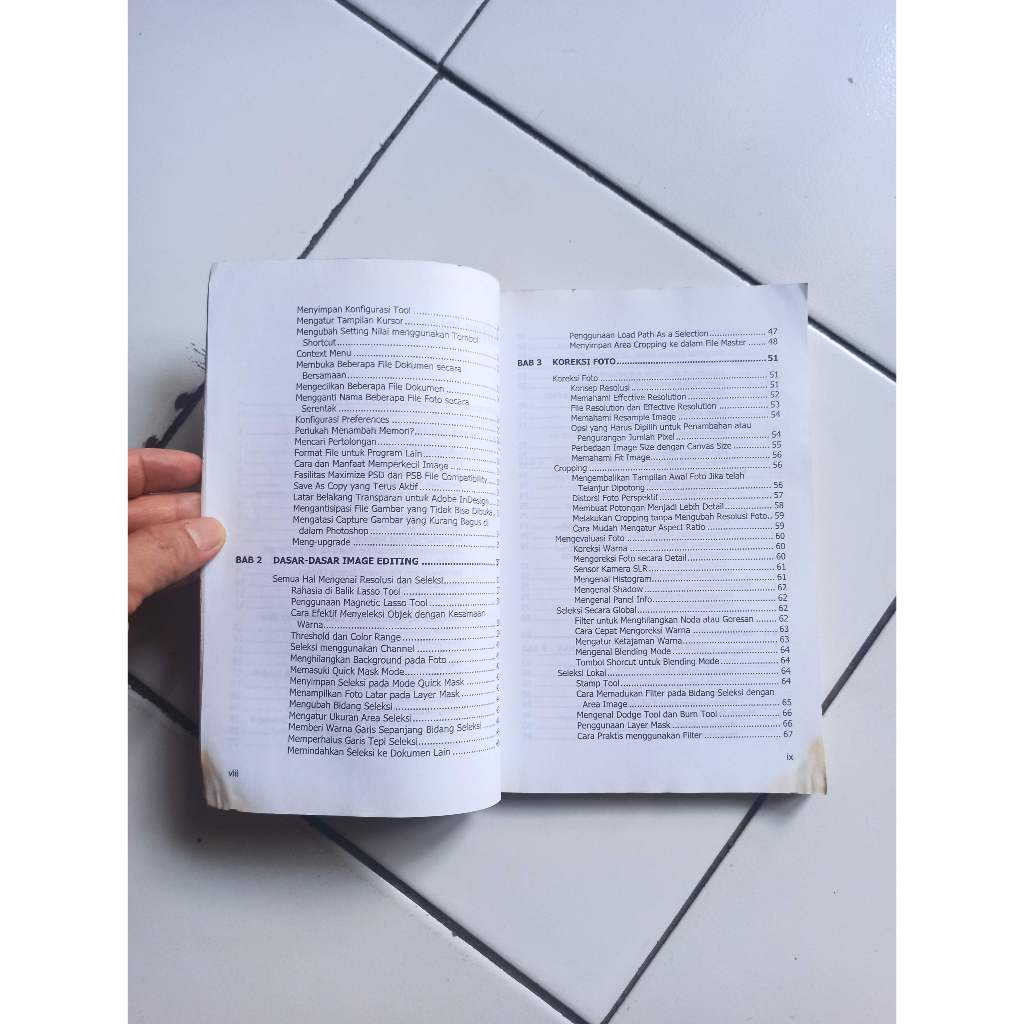 Menyimpan Konfigurasi Tool
Mengatur Tampilan Kursor
Mengubah Setting Nilai menggunakan Tombol
Shortcut
Context Menu
Membuka Beberapa File Dokumen secara
Bersamaan
Mengecilkan Beberapa File Dokumen
Mengganti Nama Beberapa File Foto secara
Serentak
Konfigurasi Preferences
Perlukah Menambah Memori?
Mencari Pertolongan
Format File untuk Program Lain
Cara dan Manfaat Memperkecil Image
Fasilitas Maximize PSD dan PSB File Compatibility
Save As Copy yang Terus Aktif
Latar Belakang Transparan untuk Adobe InDesign
Mengantisipasi File Gambar yang Tidak Bisa Dibuka
Mengatasi Capture Gambar yang Kurang Bagus di
dalam Photoshop
Meng-upgrade
BAB 2 DASAR-DASAR IMAGE EDITING
Semua Hal Mengenai Resolusi dan Seleksi
Rahasia di Balik Lasso Tool
Penggunaan Magnetic Lasso Tool
Cara Efektif Menyeleksi Objek dengan Kesamaan
Warna
Threshold dan Color Range
Seleksi menggunakan Channel
Menghilangkan Background pada Foto
Memasuki Quick Mask Mode
Menyimpan Seleksi pada Mode Quick Mask
Menampilkan Foto Latar pada Layer Mask
Mengubah Bidang Seleksi
Mengatur Ukuran Area Seleksi
Memberi Warna Garis Sepanjang Bidang Seleksi
Memperhalus Garis Tepi Seleksi
Memindahkan Seleksi ke Dokumen Lain
viii
Penggunaan Load Path As a Selection 47
Menyimpan Area Cropping ke dalam File Master 48
BAB 3 KOREKSI FOTO 51
Koreksi Foto 51
Konsep Resolusi 51
Memahami Effective Resolution 52
File Resolution dan Effective Resolution 53
Memahami Resample Image 54
Opsi yang Harus Dipilih untuk Penambahan atau
Pengurangan Jumlah Pixel 54
Perbedaan Image Size dengan Canvas Size 55
Memahami Fit Image 56
Cropping 56
Mengembalikan Tampilan Awal Foto Jika telah
Telanjur Dipotong 56
Distorsi Foto Perspektif 57
Membuat Potongan Menjadi Lebih Detail 58
Melakukan Cropping tanpa Mengubah Resolusi Foto 59
Cara Mudah Mengatur Aspect Ratio 59
Mengevaluasi Foto 60
Koreksi Warna 60
Mengoreksi Foto secara Detail 60
Sensor Kamera SLR 61
Mengenal Histogram 61
Mengenal Shadow 62
Mengenal Panel Info 62
Seleksi Secara Global 62
Filter untuk Menghilangkan Noda atau Goresan 62
Cara Cepat Mengoreksi Warna 63
Mengatur Ketajaman Warna 63
Mengenal Blending Mode 64
Tombol Shorcut untuk Blending Mode 64
Seleksi Lokal 64
Stamp Tool 64
Cara Memadukan Filter pada Bidang Seleksi dengan
Area Image 65
Mengenal Dodge Tool dan Burn Tool 66
Penggunaan Layer Mask 66
Cara Praktis menggunakan Filter 67
ix